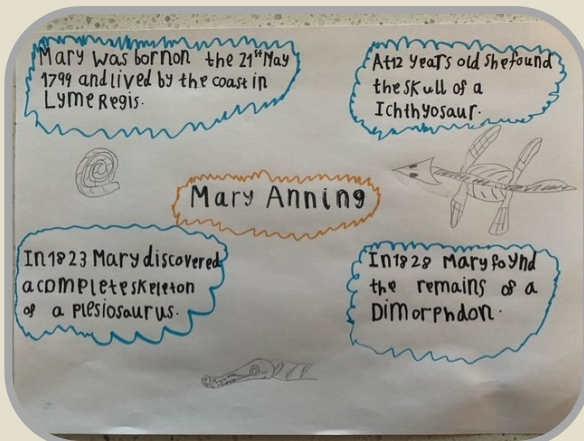 Mary was born on the 21st May
1799 and lived by the coast in
Lyme Regis.
At 12 years old she found
the skull of a
Ichthyosaur.
Mary Anning
In 1823 Mary discovered
a complete skeleton
of a Plesiosaurus.
In 1828 Mary found
the remains of a
Dimorphdon.